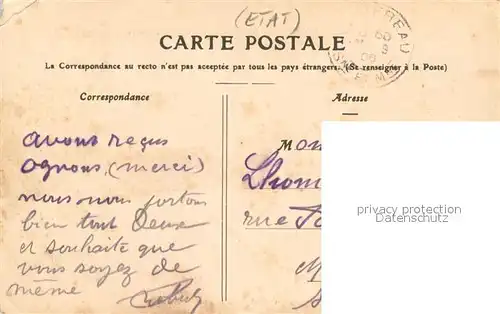 (ETAT)
CARTE POSTALE
La Correspondance au recto n'est pas acceptée par tous les pays étrangers. (Se renseigner à la Poste)
Correspondance
Adresse
avons reçus
ognons, (merci)
nous nous portons
bien tout Deux
et souhaite que
vous soyez de
même
Mon
Lhom
rue
privacy protection
Datenschutz